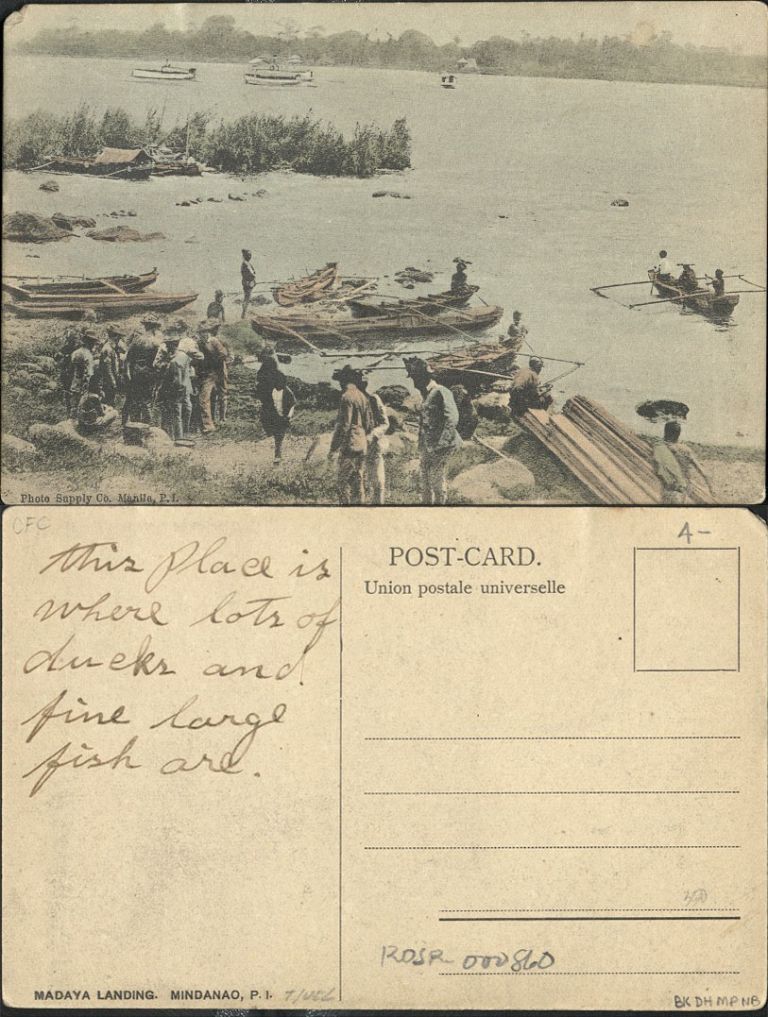 Photo Supply Co. Manila, P.I.
CFC
this Place is
where lots of
ducks and
fine large
fish are.
MADAYA LANDING. MINDANAO, P.I.
POST-CARD.
Union postale universelle
A-
000860
BK DH MP NB